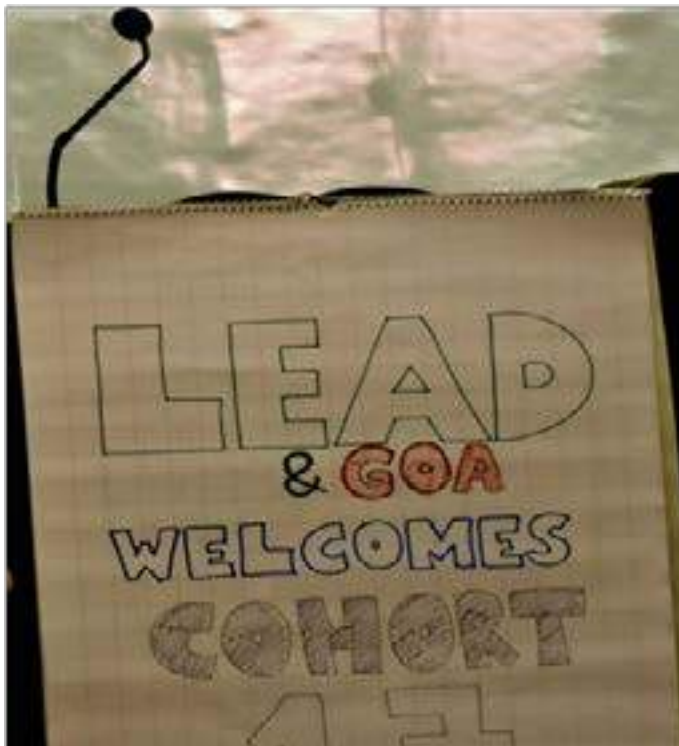 LEAD
& GOA
WELCOMES
COHORT
17